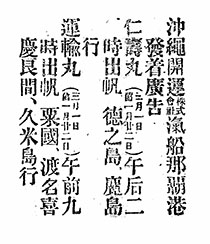 沖繩開運株式會社汽船那覇港
發着廣告
仁壽丸(三月一日(舊一月廿二日))午后二
時出帆、德之島、鹿島
行
運輸丸(三月一日(舊一月廿二日))午前九
時出帆、粟國、渡名喜
慶良間、久米島行